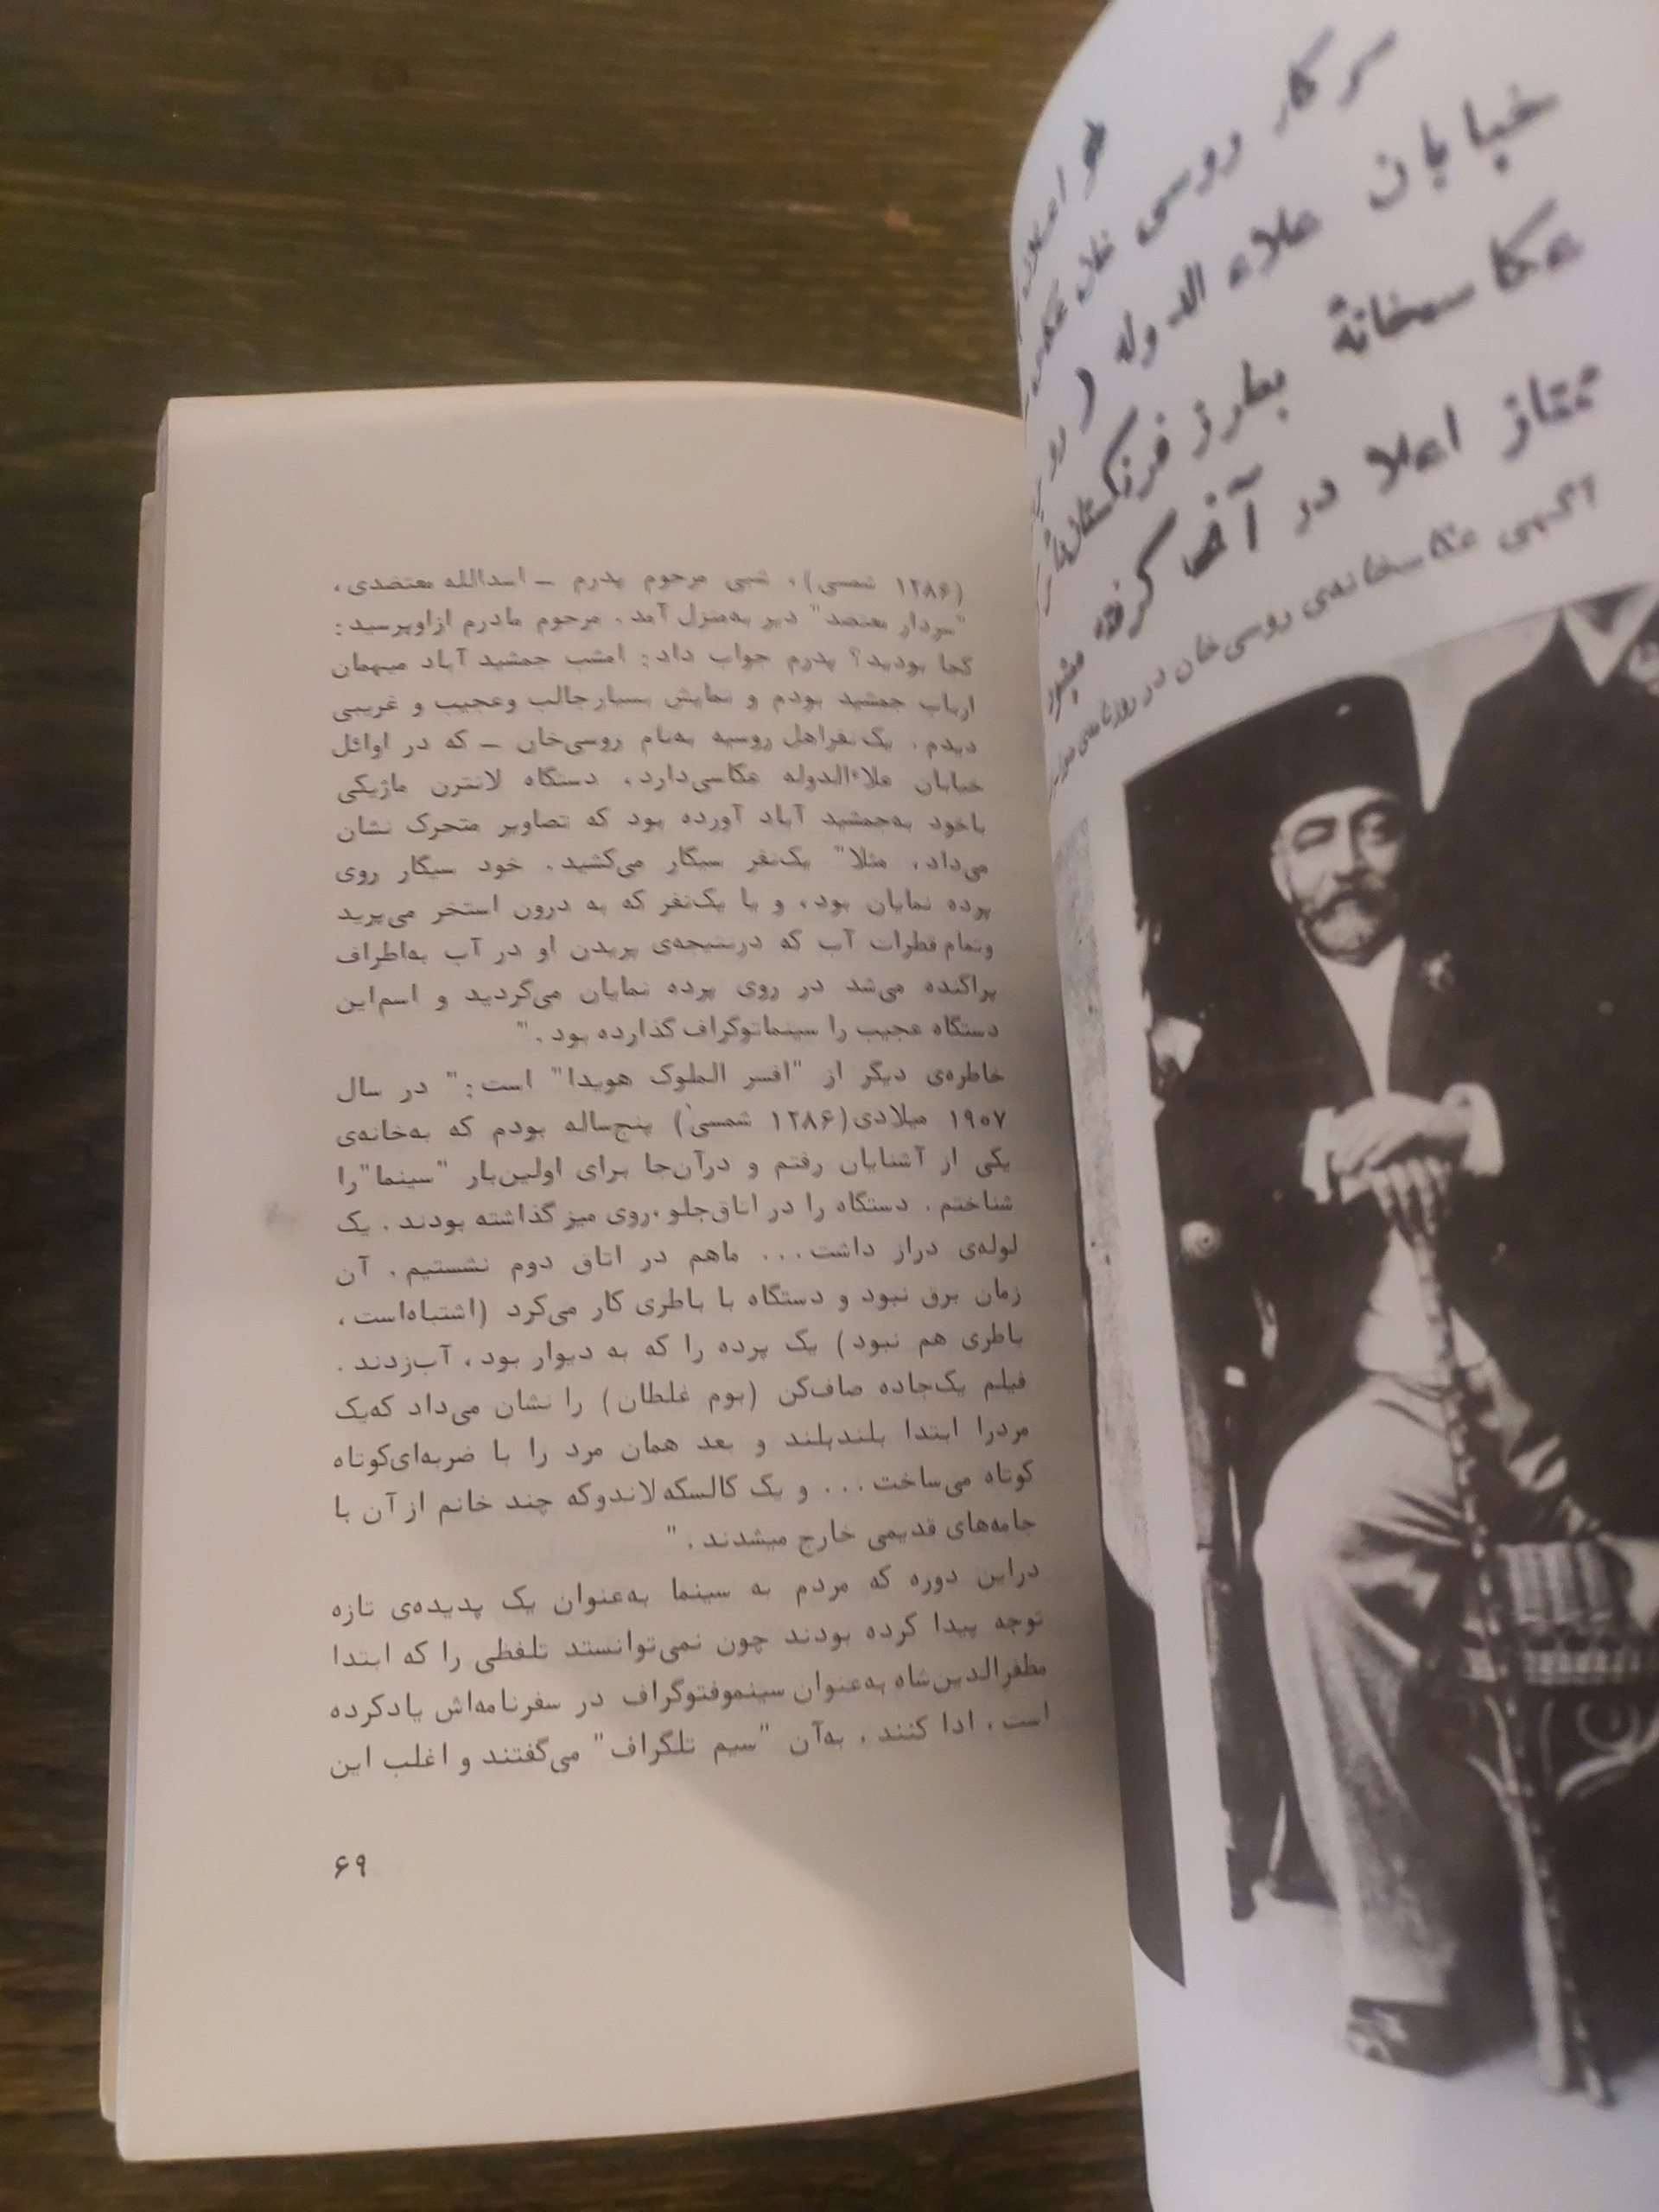 سرکار روسی خان عکاس
خیابان علاء الدوله (رو
عکاسخانهٔ بطرز فرنگستان
ممتاز اعلا در آنجا گرفته میشود
آگهی عکاسخانه‌ی روسی‌خان در روزنامه‌ی
(۱۲۸۶ شمسی)، شبی مرحوم پدرم ــ اسدالله معتضدی،
"سردار معتضد" دیر به‌منزل آمد. مرحوم مادرم ازاوپرسید:
کجا بودید؟ پدرم جواب داد: امشب جمشید آباد میهمان
ارباب جمشید بودم و نمایش بسیارجالب وعجیب و غریبی
دیدم. یک نفراهل روسیه به‌نام روسی‌خان ــ که در اوائل
خیابان علاءالدوله عکاسی‌دارد، دستگاه لانترن ماژیکی
باخود به‌جمشید آباد آورده بود که تصاویر متحرک نشان
می‌داد، مثلا" یک‌نفر سیگار می‌کشید. خود سیگار روی
پرده نمایان بود، و یا یک‌نفر که به درون استخر می‌پرید
وتمام قطرات آب که درنتیجه‌ی پریدن او در آب به‌اطراف
پراکنده می‌شد در روی پرده نمایان می‌گردید و اسم‌این
دستگاه عجیب را سینماتوگراف گذارده بود."
خاطره‌ی دیگر از "افسر الملوک هویدا" است:" در سال
۱۹۰۷ میلادی(۱۲۸۶ شمسی) پنج‌ساله بودم که به‌خانه‌ی
یکی از آشنایان رفتم و درآن‌جا برای اولین‌بار "سینما"را
شناختم. دستگاه را در اتاق‌جلو،روی میز گذاشته بودند. یک
لوله‌ی دراز داشت... ماهم در اتاق دوم نشستیم. آن
زمان برق نبود و دستگاه با باطری کار می‌کرد (اشتباه‌است،
باطری هم نبود) یک پرده را که به دیوار بود، آب‌زدند.
فیلم یک‌جاده صاف‌کن (بوم غلطان) را نشان می‌داد که‌یک
مردرا ابتدا بلندبلند و بعد همان مرد را با ضربه‌ای‌کوتاه
کوتاه می‌ساخت... و یک کالسکه‌لاندوکه چند خانم از آن با
جامه‌های قدیمی خارج میشدند."
دراین دوره که مردم به سینما به‌عنوان یک پدیده‌ی تازه
توجه پیدا کرده بودند چون نمی‌توانستد تلفظی را که ابتدا
مظفرالدین‌شاه به‌عنوان سینموفتوگراف در سفرنامه‌اش یادکرده
است، ادا کنند، به‌آن "سیم تلگراف" می‌گفتند و اغلب این
۶۹